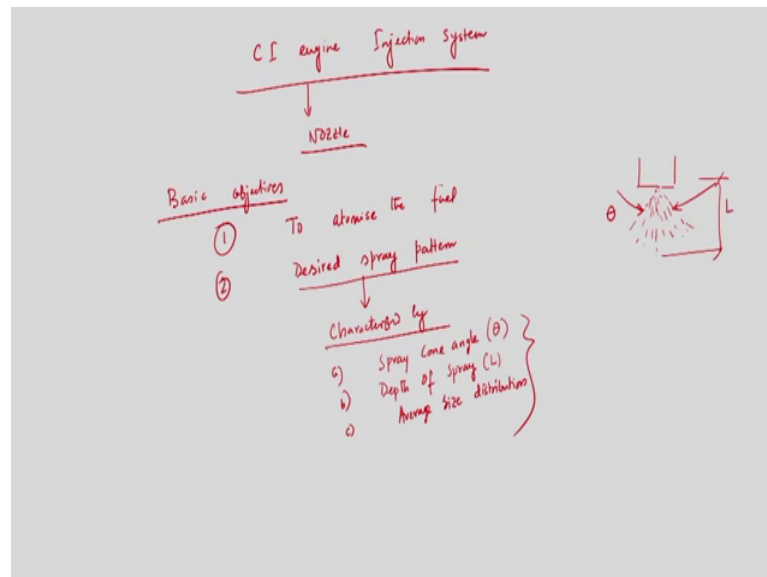 CI engine Injection system
Nozzle
Basic objectives
① To atomise the fuel
② Desired spray pattern
Characterized by
a) Spray Cone angle (θ)
b) Depth of spray (L)
c) Average size distribution
θ
L